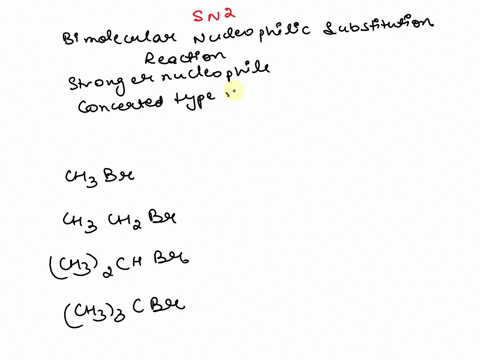 SN2
Bimolecular Nucleophilic Substitution
Reaction
Stronger nucleophile
Concerted type
CH3 Br
CH3 CH2 Br
(CH3)2 CH Br
(CH3)3 C Br